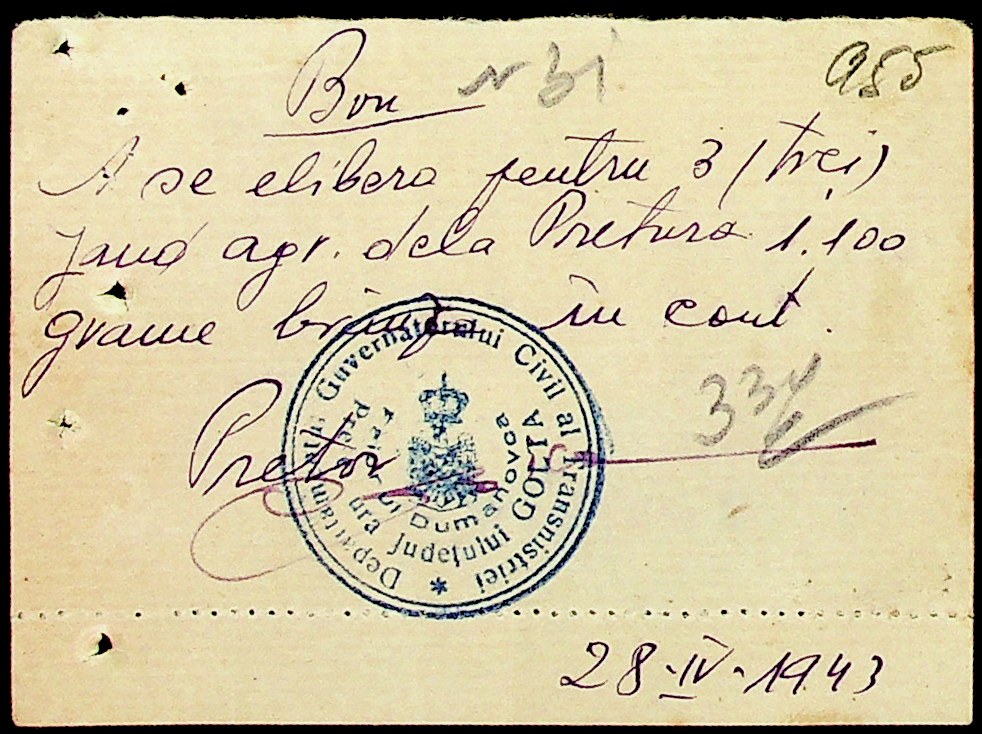 Bon N 31
955
A se elibera pentru 3 (trei)
jand agr. dela Pretura 1.100
grame brînză în cont.
334
Pretor
Guvernatorului Civil al Transnistriei
Prefectura Județului GOLTA
Dumanovca
28-IV-1943